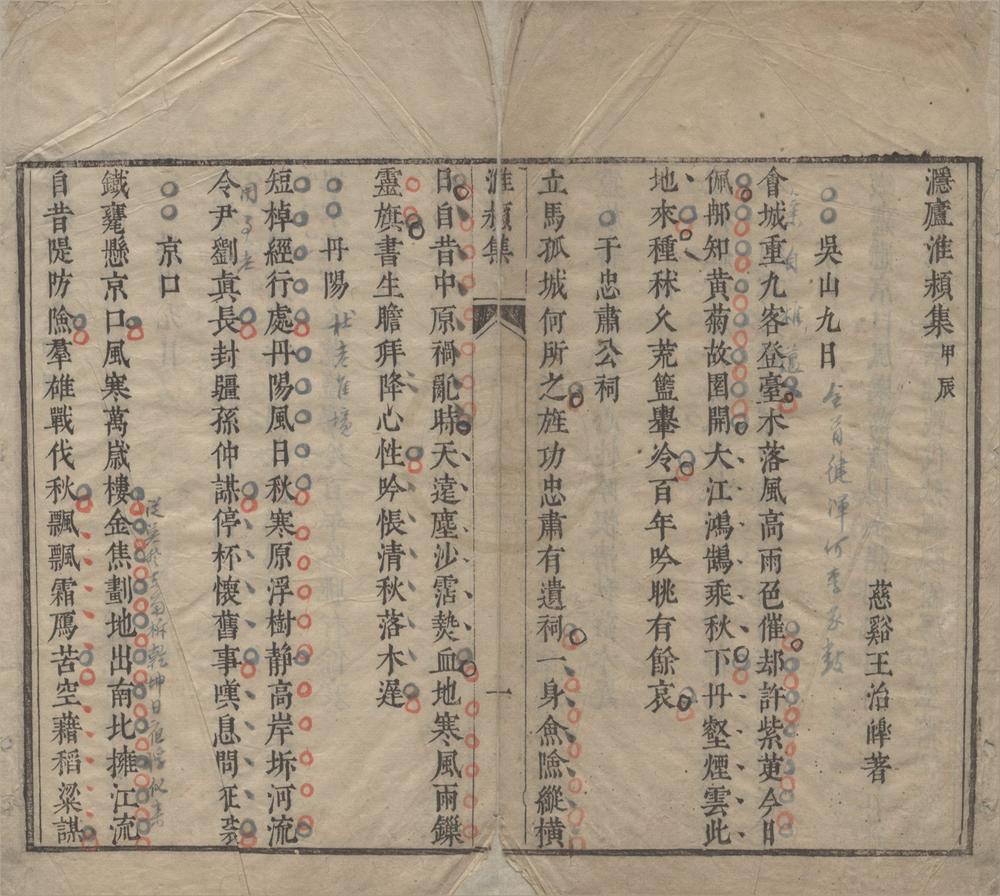 濦廬淮潁集甲辰
慈谿王治皥著
吳山九日
會城重九客登臺木落風高雨色催却許紫萸今日
佩那知黃菊故園開大江鴻鵠乘秋下丹壑煙雲此
地來種秫久荒籃轝冷百年吟眺有餘哀
于忠肅公祠
立馬孤城何所之旌功忠肅有遺祠一身僉險縱橫
淮潁集
一
日自昔中原禍亂時天遠塵沙霑熱血地寒風雨鏁
靈旗書生瞻拜降心性吟悵清秋落木遲
丹陽
短棹經行處丹陽風日秋寒原浮樹靜高岸坼河流
令尹劉真長封疆孫仲謀停杯懷舊事嘆息問
京口
鐵甕懸京口風寒萬歲樓金焦劃地出南北擁江流
自昔隄防險羣雄戰伐秋飄飄霜鴈苦空藉稻粱謀